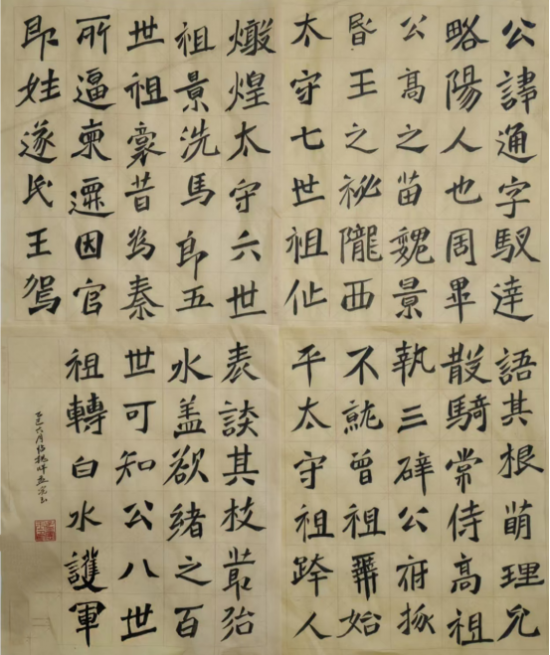 公諱通字馭達
略陽人也周畢
公高之苗魏景
昬王之祕隴西
太守七世祖仙
燉煌太守六世
祖景洗馬郎五
世祖襄昔為秦
所逼東遷因官
即娃遂民王駕
語其根萌理允
散騎常侍高祖
執三辟公府掾
不就曾祖羆始
平太守祖跨人
表談其枝叢殆
水盖欲緒之百
世可知公八世
祖轉白水護軍